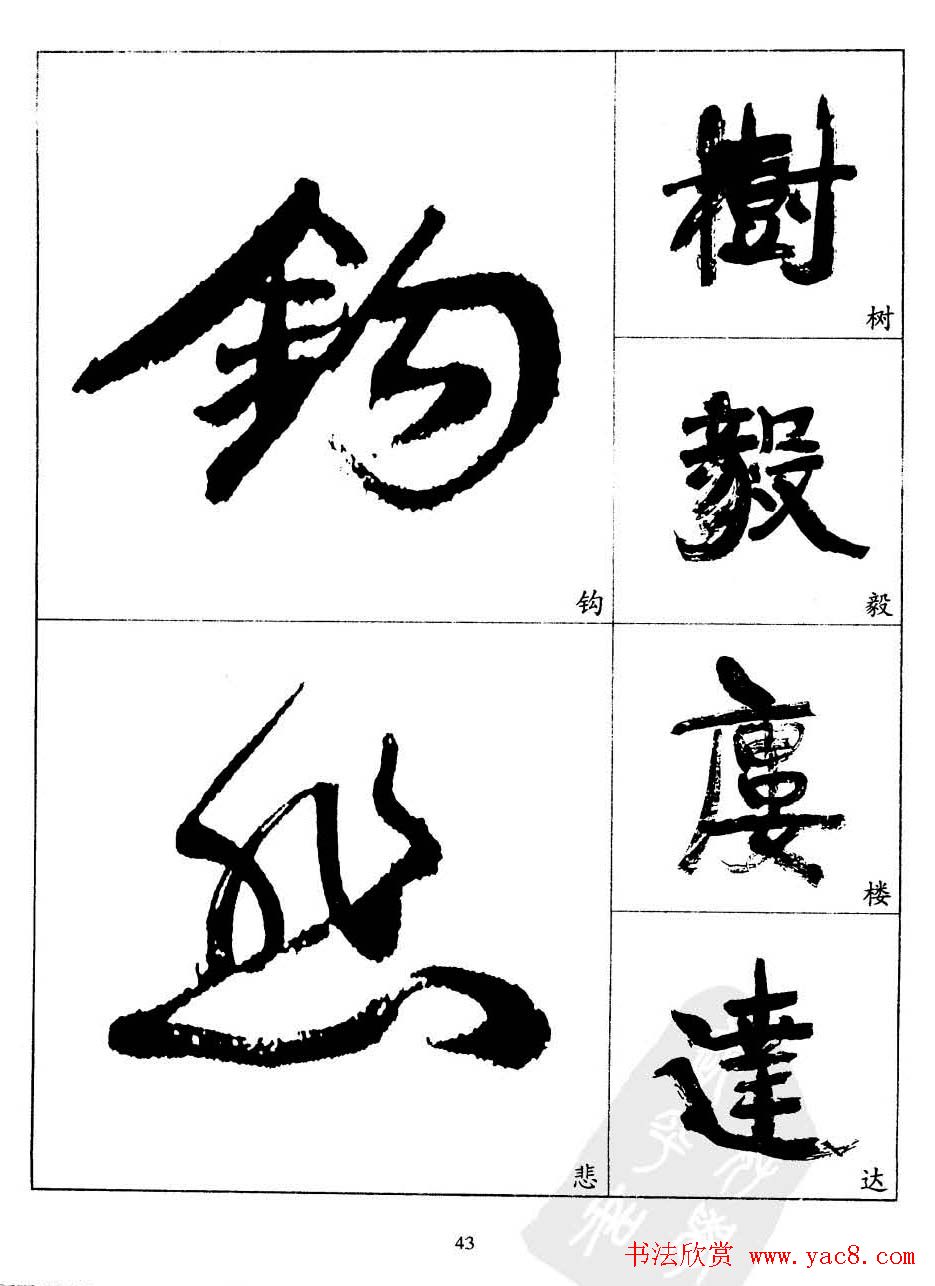 鈎
钩
悲
悲
樹
树
毅
毅
廔
楼
達
达
43
书法欣赏 www.yac8.com